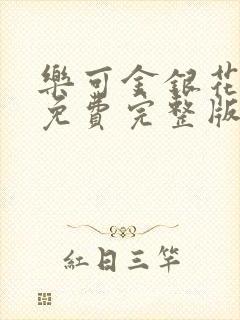 樂可金銀花
免費完整版
紅日三竿